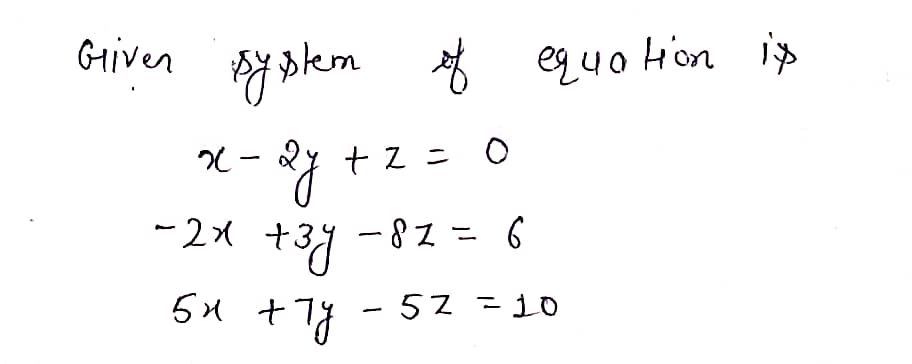 Given system of equation is
x - 2y + z = 0
-2x + 3y - 8z = 6
5x + 7y - 5z = 10